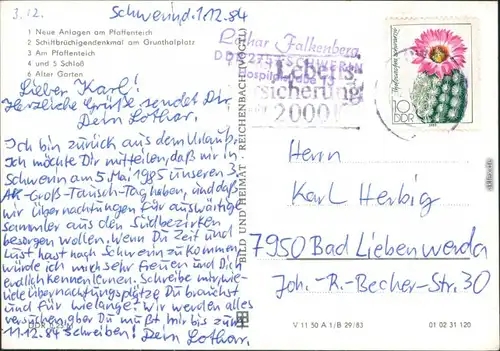 3.12.
Schwerin d. 1.12.84
1 Neue Anlagen am Pfaffenteich
2 Schiffbrüchigendenkmal am Grunthalplatz
3 Am Pfaffenteich
4 und 5 Schloß
6 Alter Garten
Lieber Karl!
Herzliche Grüße sendet Dir
Dein Lothar.
Ich bin zurück aus dem Urlaub.
Ich möchte Dir mitteilen, daß wir in
Schwerin am 5. Mai 1985 unseren 3.
AK-Groß-Tausch-Tag haben, und daß
wir Übernachtungen für auswärtige
Sammler aus den Südbezirken
besorgen wollen. Wenn Du Zeit und
Lust hast nach Schwerin zu kommen,
würde ich mich sehr freuen und Dich
endlich kennen lernen. Schreibe mir, wie
viele Übernachtungsplätze Du brauchst
und für wielange! Wir werden alles
versuchen, aber Du mußt mir bis zum
11.12.84 schreiben! Dein Lothar.
BILD UND HEIMAT REICHENBACH (VOGTL)
Lothar Falkenberg
DDR 27 SCHWERIN
Hospitalstr.
Lebens
versicherung
2000!
10
DDR
Herrn
Karl Herbig
7950 Bad Liebenwerda
Joh.-R.-Becher-Str. 30
V 11 50 A 1/B 29/83
01 02 31 120